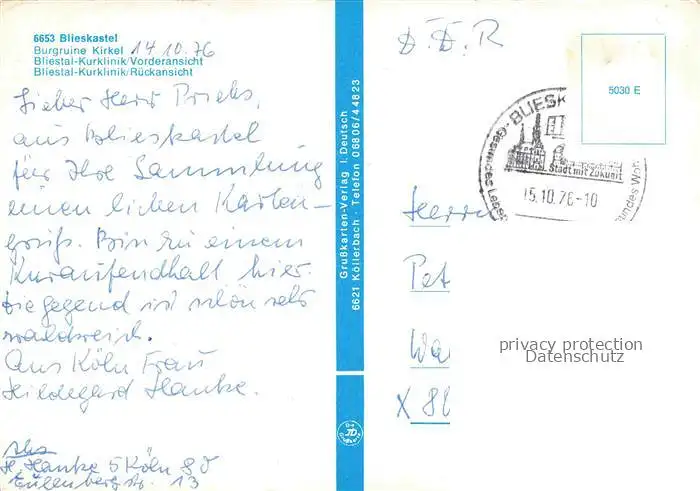 6653 Blieskastel
Burgruine Kirkel
14 10. 76
Bliestal-Kurklinik/Vorderansicht
Bliestal-Kurklinik/Rückansicht
Lieber Herr
aus Blieskastel
für Ihre Sammlung
einen lieben Karten-
gruß. Bin zu einem
Kuraufendhalt hier.
Die gegend ist schön sehr
waldreich.
Aus Köln Frau
Hildegard Hanke.
Abs
H. Hanke 5 Köln 80
Eulenberg str. 13
Grußkarten-Verlag I. Deutsch
6621 Köllerbach · Telefon 06806/44823
D. D. R
5030 E
BLIESK
Stadt mit Zukunft
Gesundes Leben
15.10.76-10
Herrn
Pet
X 88
privacy protection
Datenschutz